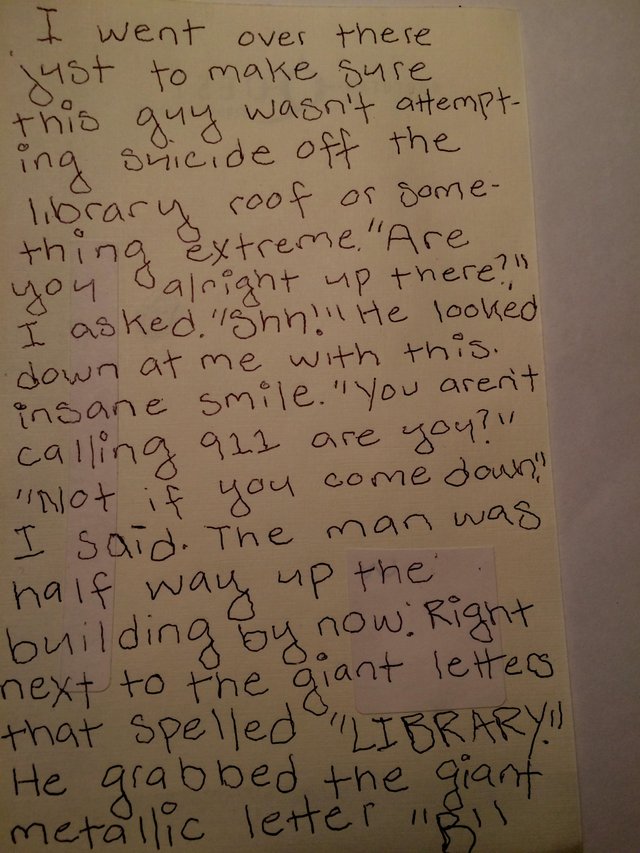 I went over there
just to make sure
this guy wasn't attempt-
ing suicide off the
library roof or some-
thing extreme. "Are
you alright up there?,"
I asked. "Shh!" He looked
down at me with this.
insane smile. "You aren't
calling 911 are you?"
"Not if you come down,"
I said. The man was
half way up the
building by now. Right
next to the giant letters
that spelled "LIBRARY."
He grabbed the giant
metallic letter "B"